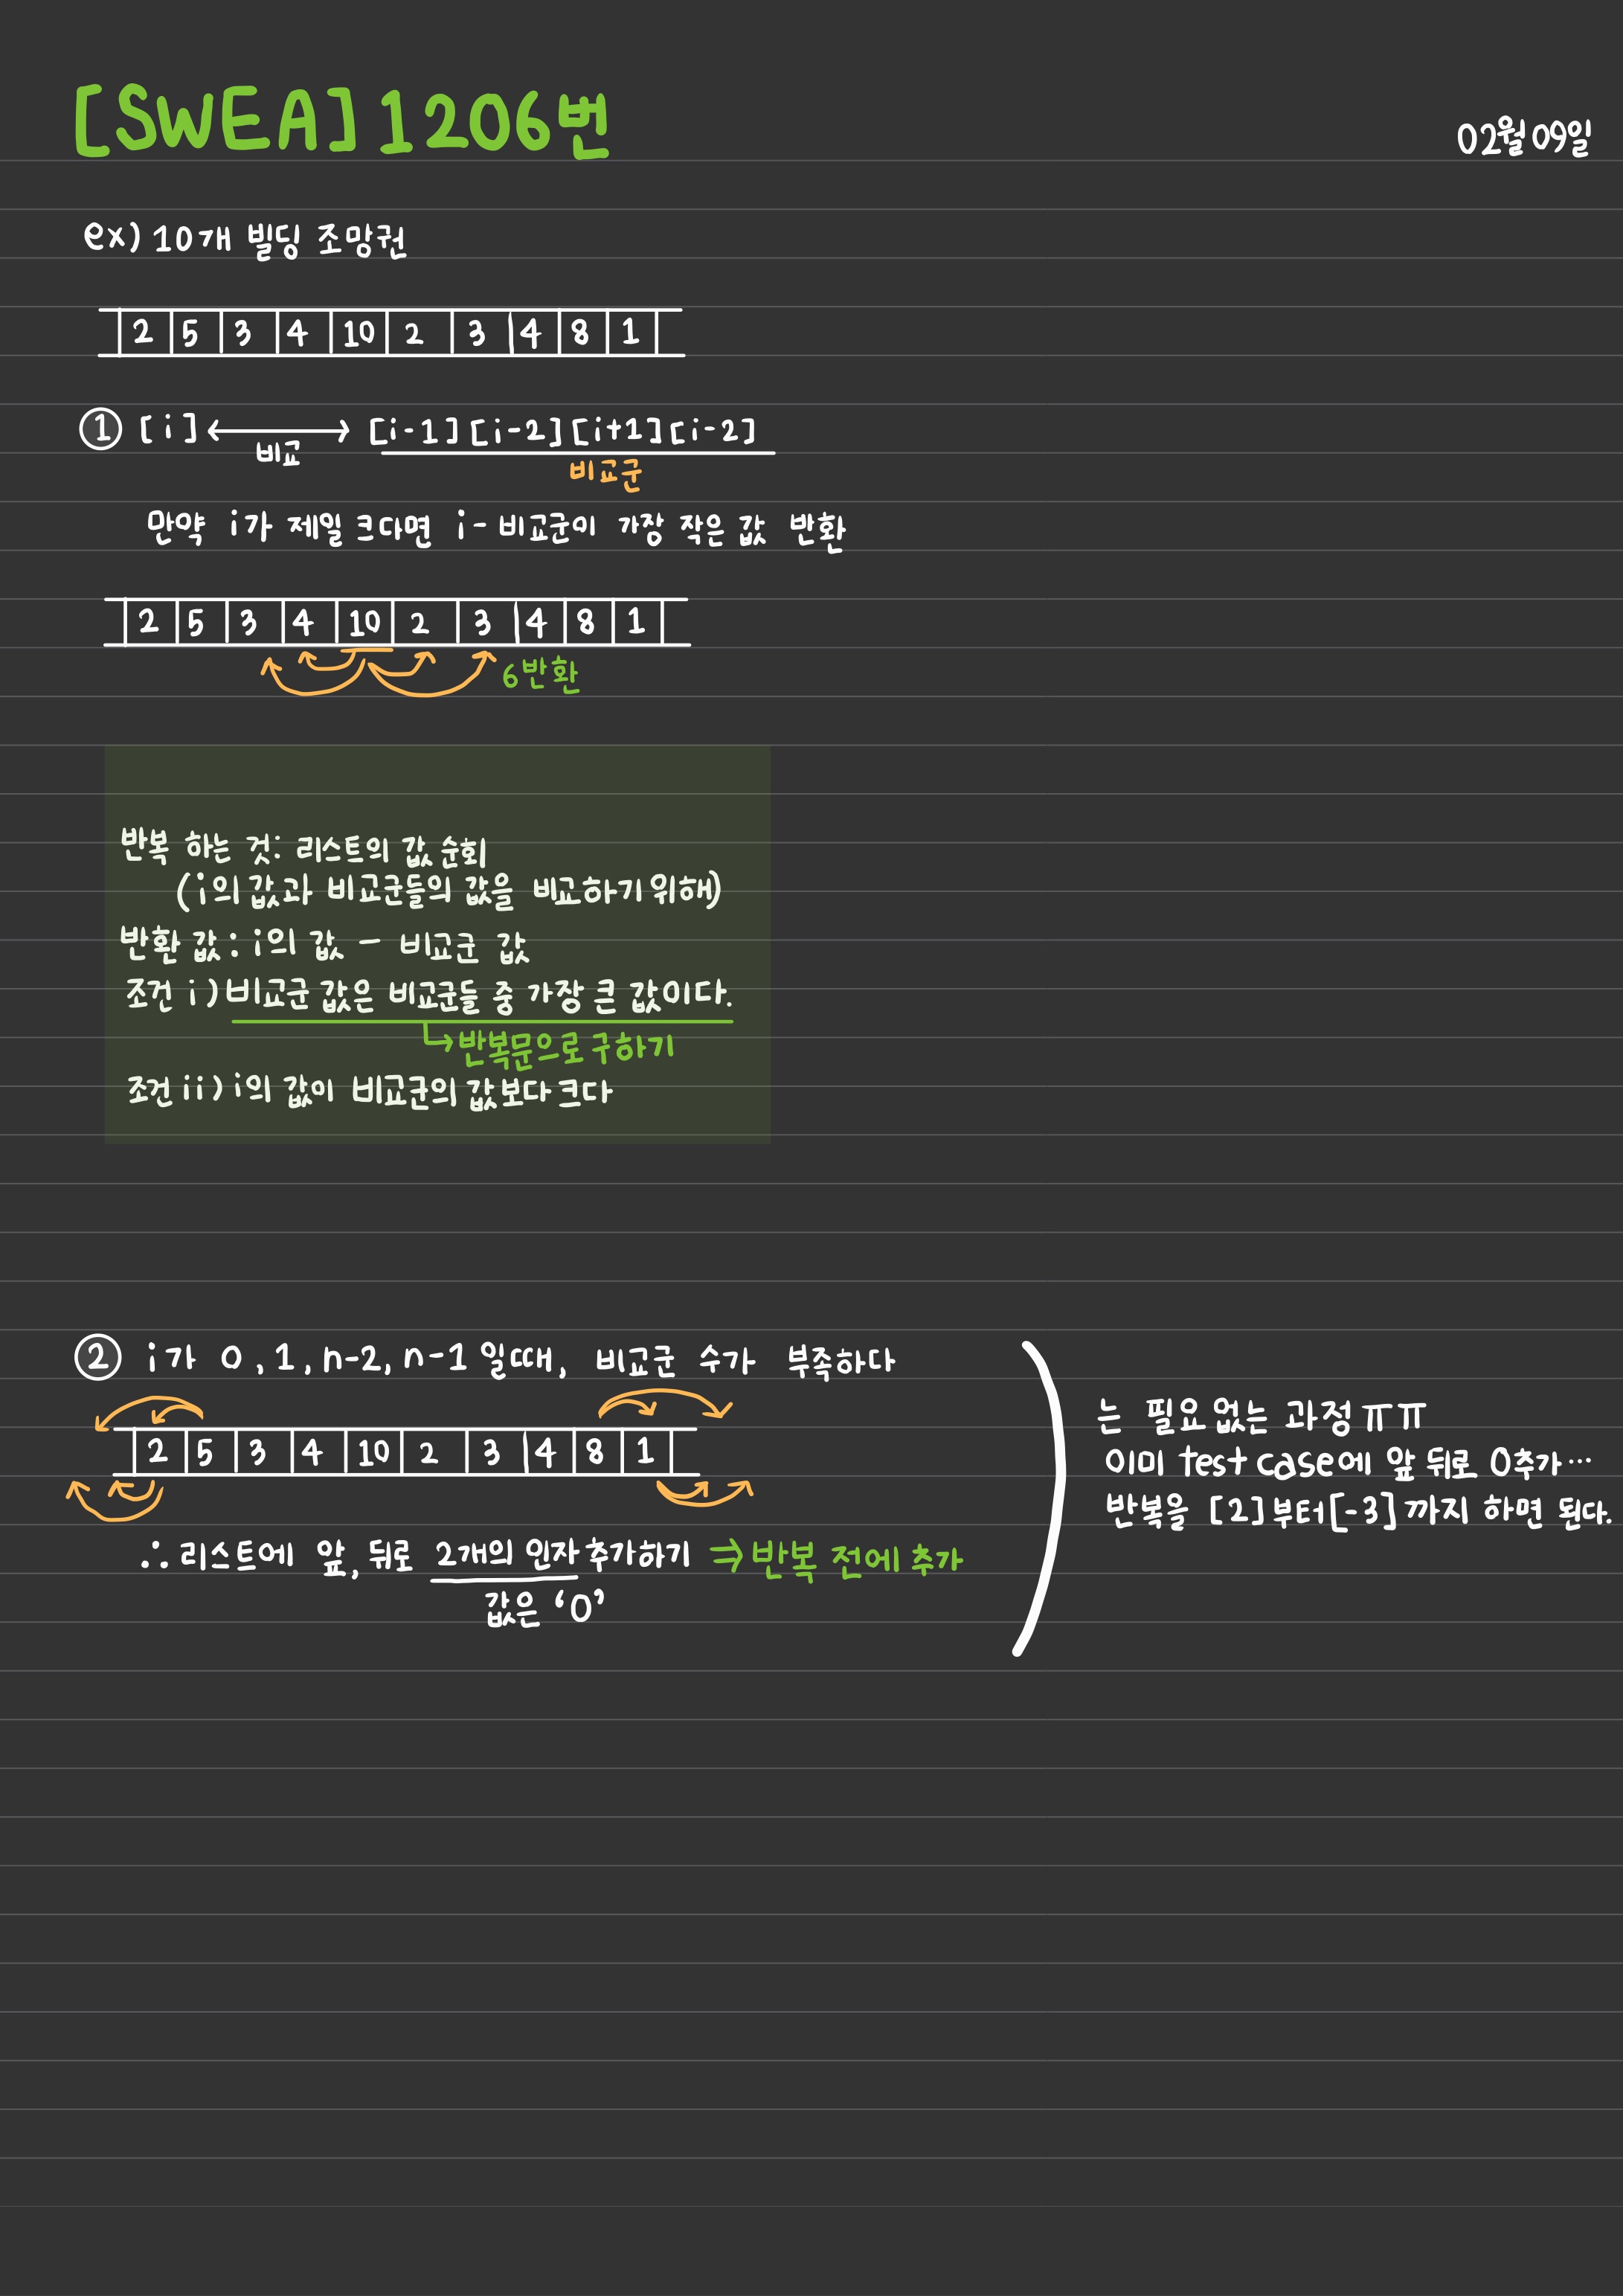 [SWEA] 1206번
02월09일
ex) 10개 빌딩 조망권
2 5 3 4 10 2 3 4 8 1
① [i] ↔ [i-1][i-2][i+1][i-2]
비교
비교군
만약 i가 제일 크다면 i - 비교군이 가장 작은 값 반환
2 5 3 4 10 2 3 4 8 1
6반환
반복 하는 것: 리스트의 값 순회
(i의 값과 비교군들의 값을 비교하기위해)
반환 값: i의 값 - 비교군 값
조건 i) 비교군 값은 비교군들 중 가장 큰 값이다.
↳ 반복문으로 구하기
조건 ii) i의 값이 비교군의 값보다 크다
② i가 0, 1, n-2, n-1 일때, 비교군 수가 부족하다
2 5 3 4 10 2 3 4 8 1
∴ 리스트에 앞, 뒤로 2개의 인자 추가하기 ⇒ 반복 전에 추가
값은 '0'
는 필요 없는 과정 ㅠㅠ
이미 test case에 앞 뒤로 0추가…
반복을 [2]부터[-3]까지 하면 된다.